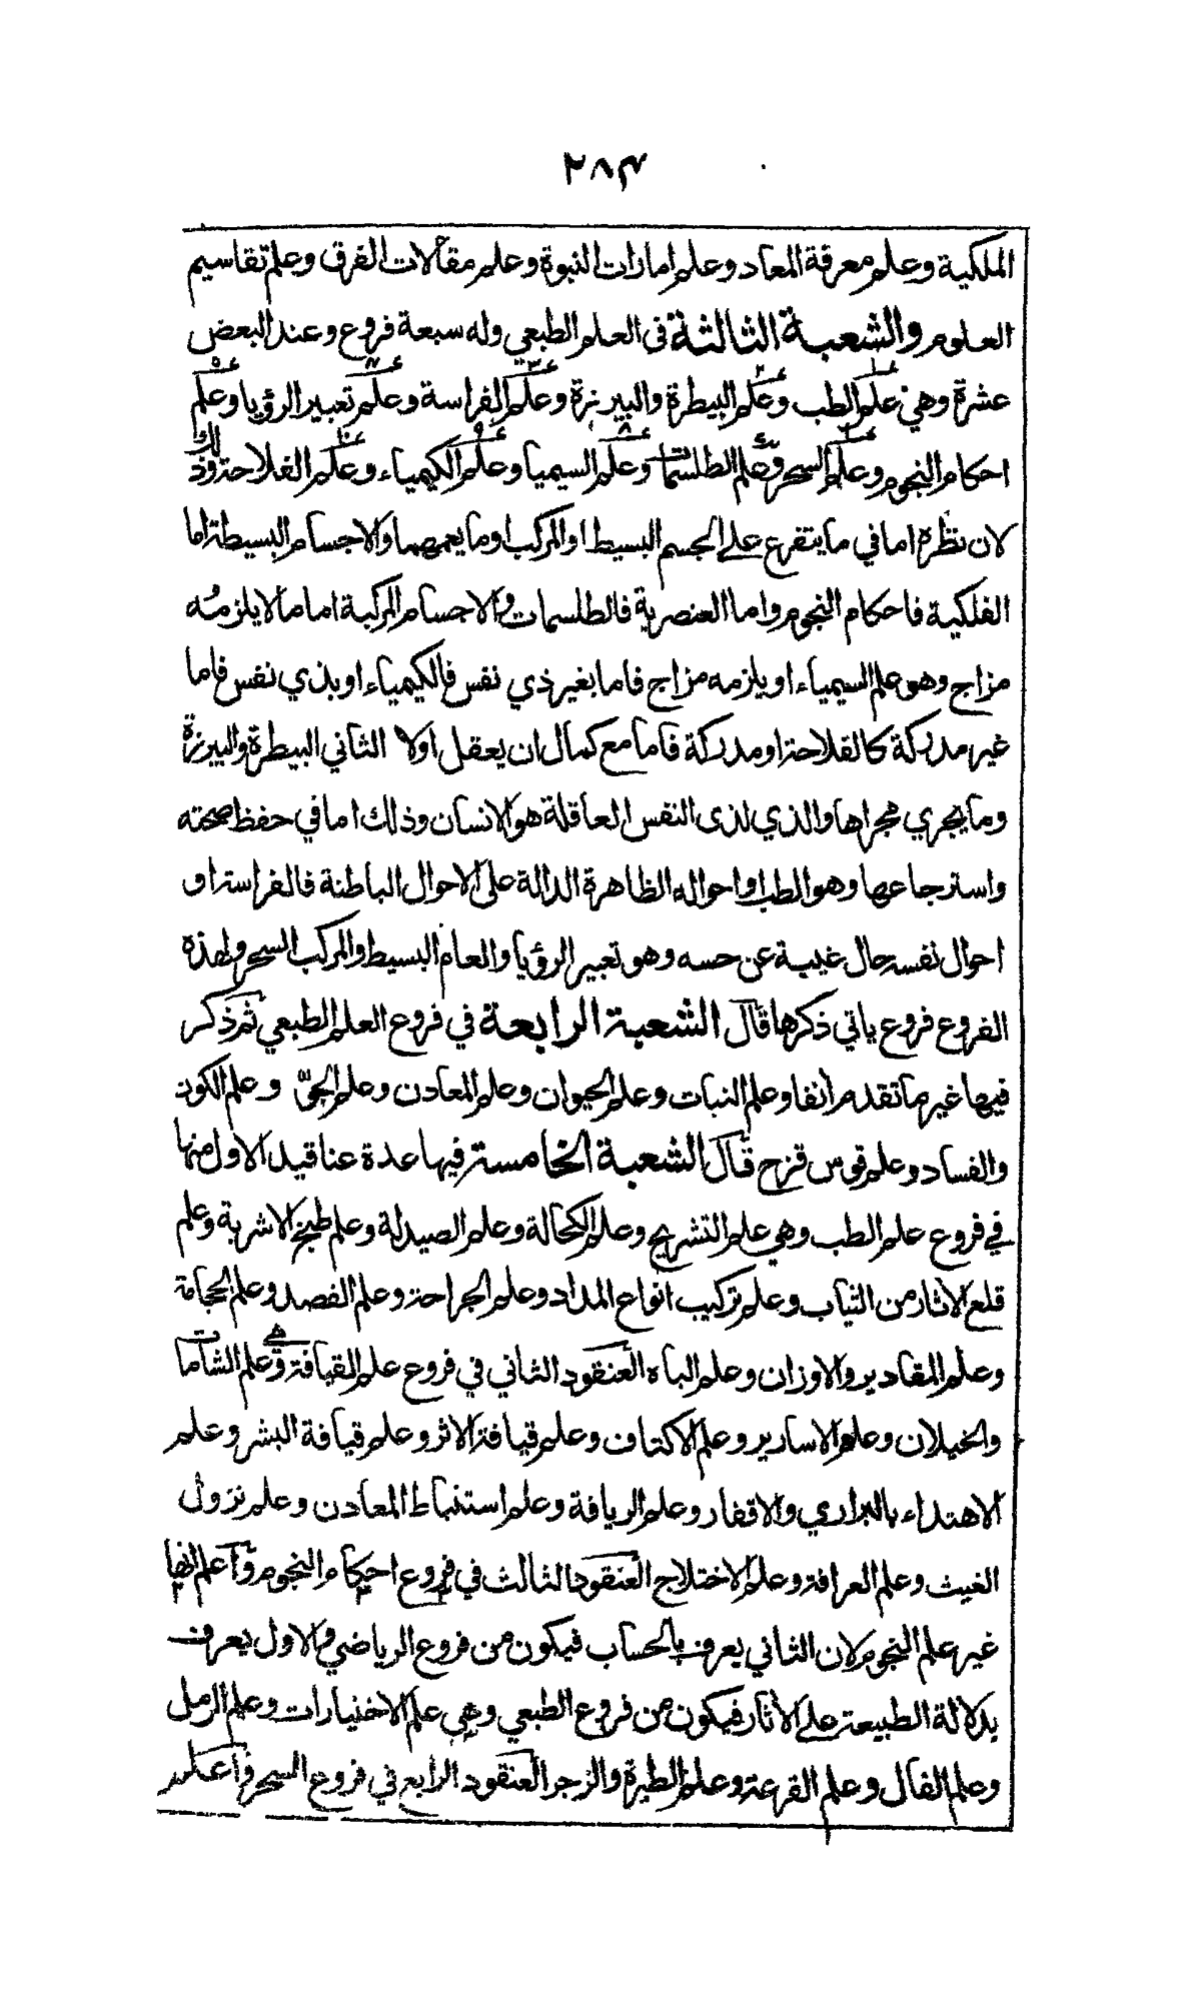 ٢٨٤
الملكية وعلم معرفة المعاد وعلم امارات النبوة وعلم مقالات الفرق وعلم تقاسيم
العلوم والشعبة الثالثة فى العلم الطبعي وله سبعة فروع وعند البعض
عشرة وهي علم الطب وعلم البيطرة والبيرزة وعلم الفراسة وعلم تعبير الرؤيا وعلم
احكام النجوم وعلم السحر وعلم الطلسمات وعلم السيميا وعلم الكيمياء وعلم الفلاحة وذلك
لان نظره اما في ما يتفرع على الجسم البسيط او المركب او ما يعمهما والاجسام البسيطة اما
الفلكية فاحكام النجوم واما العنصرية فالطلسمات والاجسام المركبة اما ما لا يلزمه
مزاج وهو علم السيمياء او يلزمه مزاج فاما بغير ذي نفس فالكيمياء او بذي نفس فاما
غير مدركة كالفلاحة او مدركة فاما مع كمال ان يعقل اولا الثاني البيطرة والبيرزة
وما يجري مجراها والذي لذى النفس العاقلة هو الانسان وذلك اما في حفظ صحته
واسترجاعها وهو الطب او احواله الظاهرة الدالة على الاحوال الباطنة فالفراسة او
احوال نفسه حال غيبة عن حسه وهو تعبير الرؤيا والعام البسيط والمركب السحر ولهذه
الفروع فروع ياتي ذكرها قال الشعبة الرابعة في فروع العلم الطبعي ثم ذكر
فيها غير ما تقدم آنفا وعلم النبات وعلم الحيوان وعلم المعادن وعلم الجو وعلم الكون
والفساد وعلم قوس قزح قال الشعبة الخامسة فيها عدة عناقيد الاول منها
في فروع علم الطب وهي علم التشريح وعلم الكحالة وعلم الصيدلة وعلم طبخ الاشربة وعلم
قلع الاثار من الثياب وعلم تركيب انواع المداد وعلم الجراحة وعلم الفصد وعلم الحجامة
وعلم المقادير والاوزان وعلم الباه العنقود الثاني في فروع علم القيافة وهي علم الشامات
والخيلان وعلم الاسارير وعلم الاكتاف وعلم قيافة الاثر وعلم قيافة البشر وعلم
الاهتداء بالبراري والاقفار وعلم الريافة وعلم استنباط المعادن وعلم نزول
الغيث وعلم العرافة وعلم الاختلاج العنقود الثالث في فروع احكام النجوم واعلم انها
غير علم النجوم لان الثاني يعرف بالحساب فيكون من فروع الرياضي والاول يعرف
بدلالة الطبيعة على الآثار فيكون من فروع الطبعي وهي علم الاختيارات وعلم الرمل
وعلم الفال وعلم القرعة وعلم الطيرة والزجر العنقود الرابع في فروع السحر واعلم